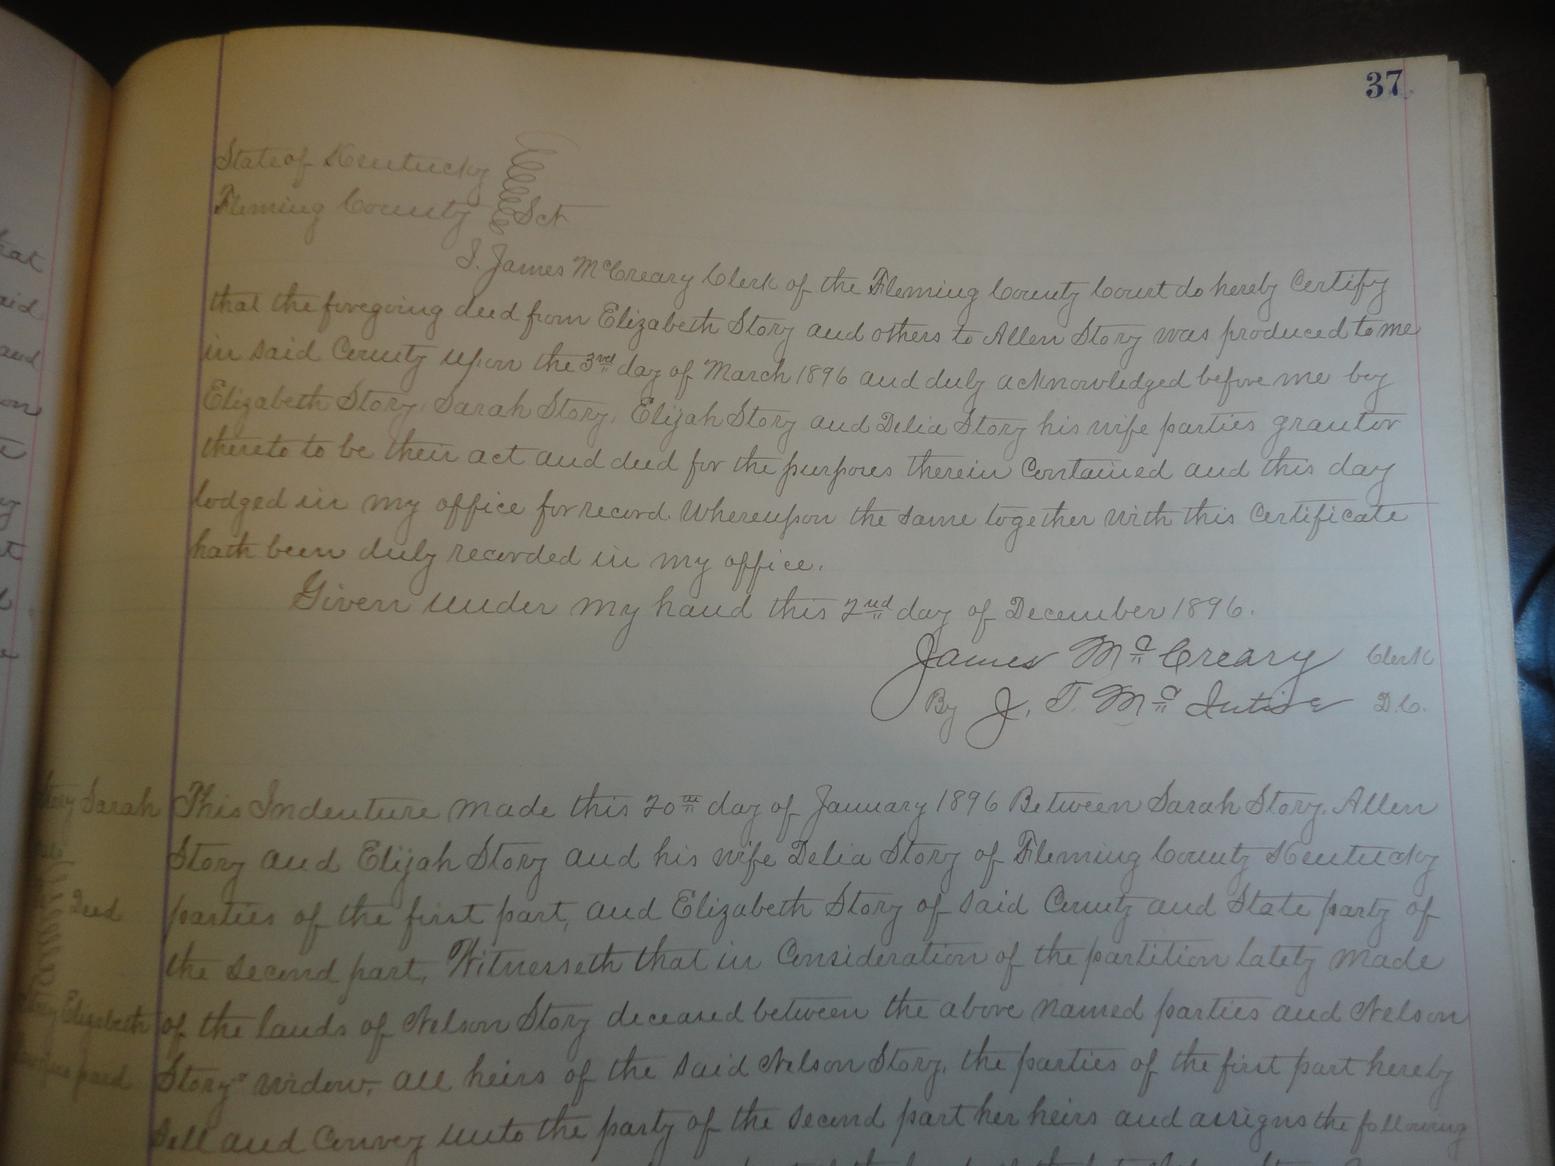 37
State of Kentucky
Fleming County Sct
I. James McCreary Clerk of the Fleming County Court do hereby Certify
that the foregoing deed from Elizabeth Story and others to Allen Story was produced to me
in said County upon the 3rd day of March 1896 and duly acknowledged before me by
Elizabeth Story, Sarah Story, Elijah Story and Delia Story his wife parties grantor
thereto to be their act and deed for the purposes therein Contained and this day
lodged in my office for record. Whereupon the same together with this Certificate
hath been duly recorded in my office.
Given under my hand this 2nd day of December 1896.
James Mc Creary Clerk
By J. T. Mc Intire D.C.
Story Sarah
Deed
Story Elizabeth
paid
This Indenture made this 20th day of January 1896 Between Sarah Story, Allen
Story and Elijah Story and his wife Delia Story of Fleming County Kentucky
parties of the first part, and Elizabeth Story of said County and State party of
the second part, Witnesseth that in Consideration of the partition lately made
of the lands of Nelson Story deceased between the above named parties and Nelson
Story's widow, all heirs of the said Nelson Story, the parties of the first part hereby
sell and Convey unto the party of the second part her heirs and assigns the following